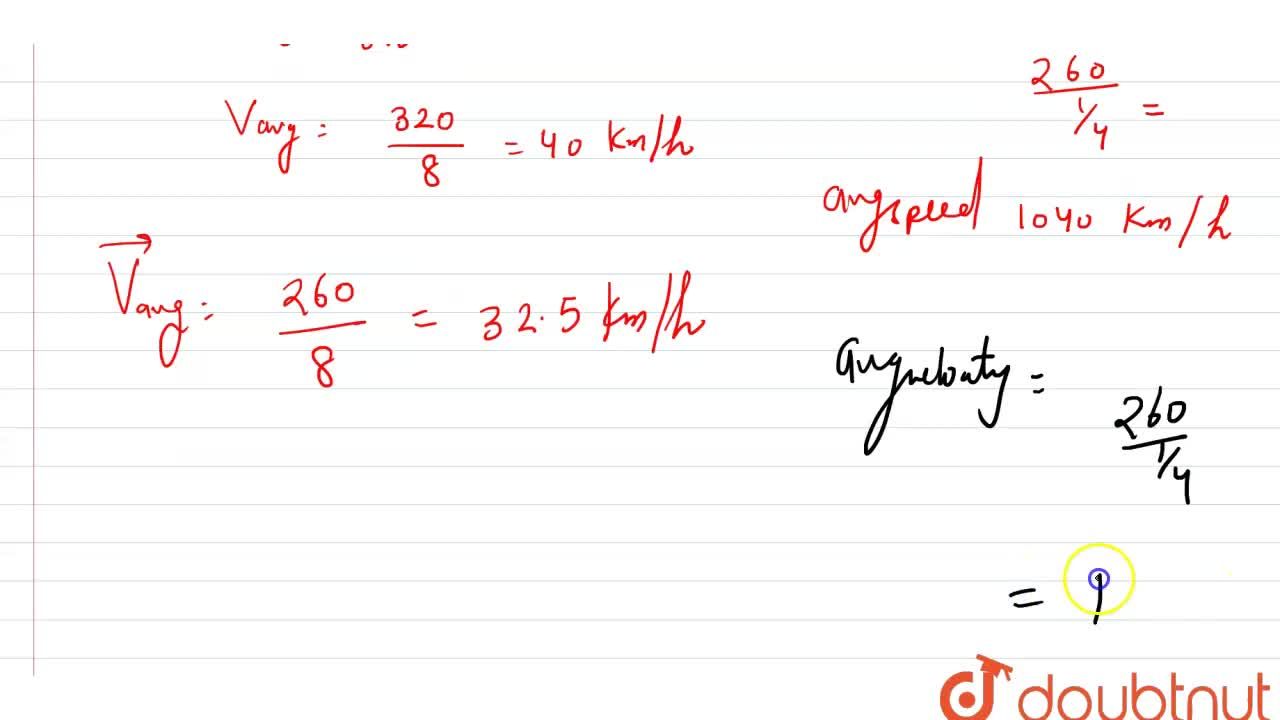 Vavg = 320/8 = 40 Km/h
Vavg = 260/8 = 32.5 Km/h
260/1/4 =
avgspeed 1040 Km/h
avgvelocity =
260/1/4
= 1
doubtnut